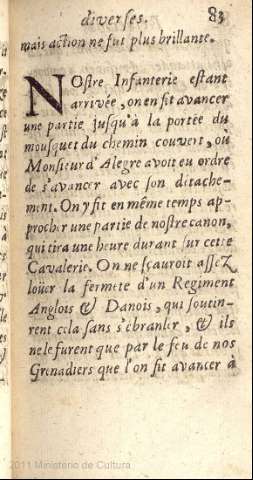 diverses. 83
mais action ne fut plus brillante.
NOstre Infanterie estant
arrivée, on en fit avancer
une partie jusqu'à la portée du
mousquet du chemin couvert, où
Monsieur d'Alegre avoit eu ordre
de s'avancer avec son détache-
ment. On y fit en même temps ap-
procher une partie de nostre canon,
qui tira une heure durant sur cette
Cavalerie. On ne sçauroit assez
loüer la fermeté d'un Regiment
Anglois & Danois, qui soutin-
rent cela sans s'ébranler, & ils
ne le furent que par le feu de nos
Grenadiers que l'on fit avancer à
2011 Ministerio de Cultura